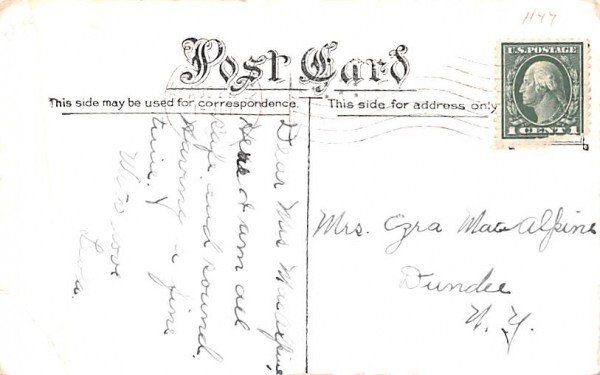 1144
U.S. POSTAGE
1 CENT 1
Post Card
This side may be used for correspondence.
This side for address only
Dear Mrs MacAlpine,
Here I am all
safe and sound.
Having a fine
time.
With love
Mrs. Ezra MacAlpine
Dundee
N. Y.